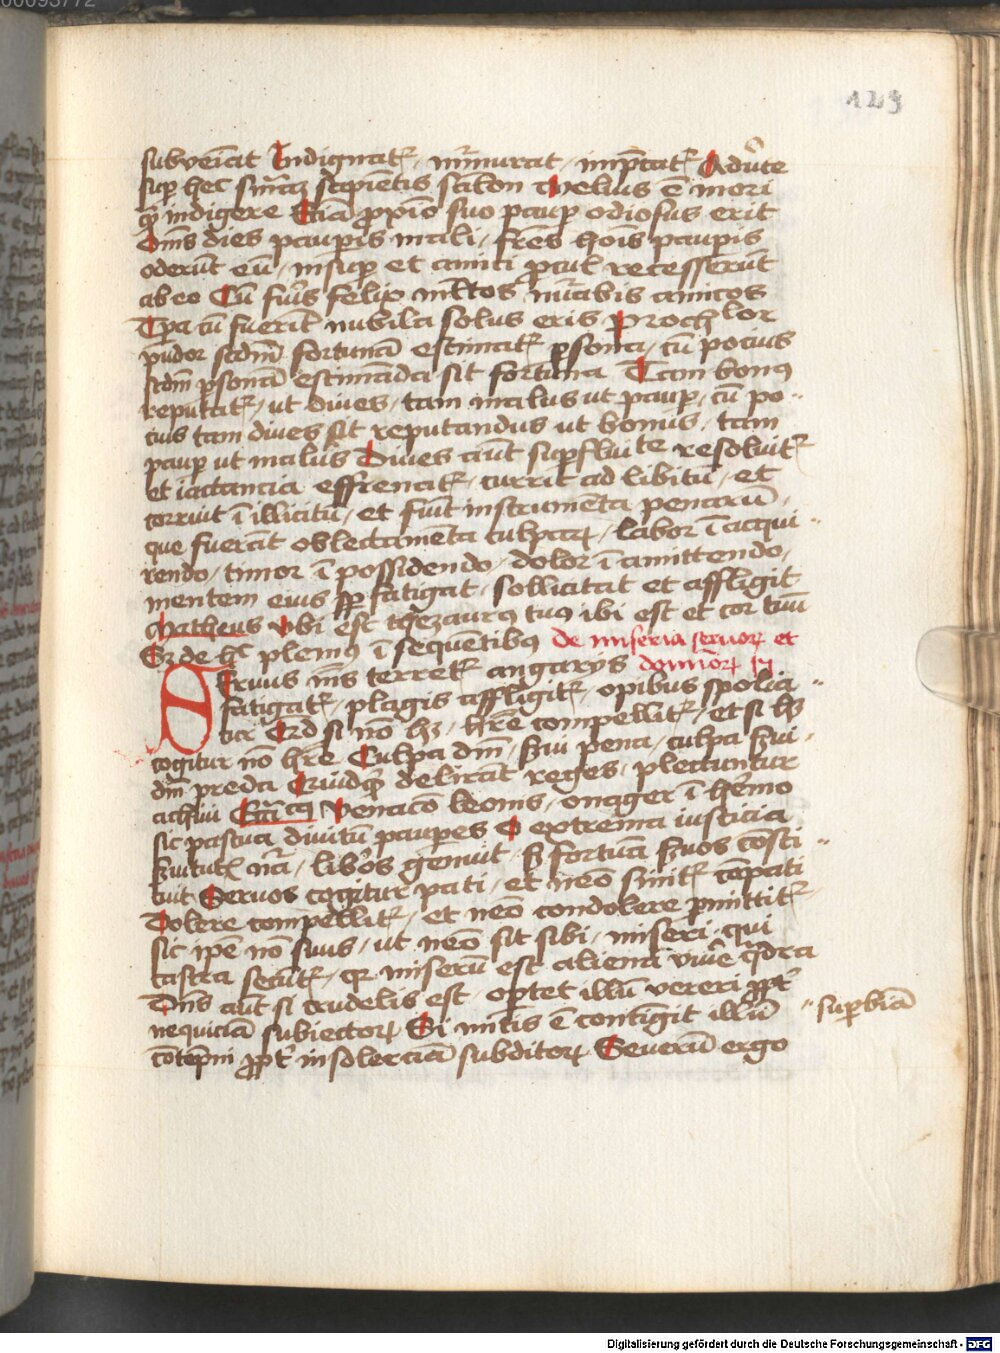 00093772
123
subveīat Indignat᷑ · m̄murat · imp̄cat᷑ Adūte
suꝑ hec sniāꝫ sapientis scdm melius ē mori
ꝙ̄ indigere Eciā ꝓxīo suo pauꝑ odiosus erit
Om̄s dies pauꝑis mali · fr̄es hoīs pauperis
oderūt eū · insuꝑ et amici ꝓcul recesserūt
ab eo Cū fueīs felix m̄ltos nūabis amicos
Tꝑa cū fuerīt nubila solus eris Proch dolor
pudor scdm̄ fortunā estimat᷑ ꝑsona · cū pocius
scdm ꝑsonā estimāda sit fortuna Tam bonꝰ
reputat᷑ · ut dives · tam malus ut pauꝑ · cū po-
cius tam dives sit reputandus ut bonus · tam
pauꝑ ut malus Dives aūt suꝑfluite resolvit᷑
et iactancia effrenat᷑ · currit ad libitū · et
corruit ī illicitū · et fiūt instrumēta penarū ·
que fuerāt oblectamēta culpaꝝ · labor ī acqui-
rendo · timor ī possidendo · dolor ī amittendo ·
mentem eius sꝑ fatigat · sollicitat et affligit
Matheus Ubi est thezaurꝰ tuꝰ ibi est et cor tuū
Sꝫ de h̄ plenius ī sequētibꝰ de miseria servoꝝ et
dominoꝝ
Servus m̄s terret᷑ angarijs
fatigat᷑ · plagis affligit᷑ · opibus spolia-
tur Qd si nō hꝫ · hr̄e compellit᷑ · et si hꝫ
cogitur nō hr̄e Culpa dm̄ · s̄vi pena · culpa s̄vi ·
dm̄ preda Quidꝙ̄ delirāt reges · plectuntur
achivi Eccīcꝰ Venacō leonis · onager ī hēmo
sic pascua divitū pauperes O extrema iusticia
s̄vitut᷑ nā · libōs genuit · sꝫ fortūa s̄vos cōsti-
tuit Servus cogitur pati · et nēo sinit᷑ cōpati
Dolere compellit᷑ · et nēo condolere ꝑmittit᷑
sic ip̄e nō suus · ut nēo sit sibi · miseri qui
castra secūt᷑ · qr miserū est aliena vivē q̄dra
Dn̄s aūt si crudelis est · optet illū vereri ꝓpt̄
nequiciā subiectoꝝ Si mitis ē contigit illū
cōtēpni ꝓpt̄ insolenciā subditoꝝ Severū ergo
suꝑbiā
Digitalisierung gefördert durch die Deutsche Forschungsgemeinschaft - DFG